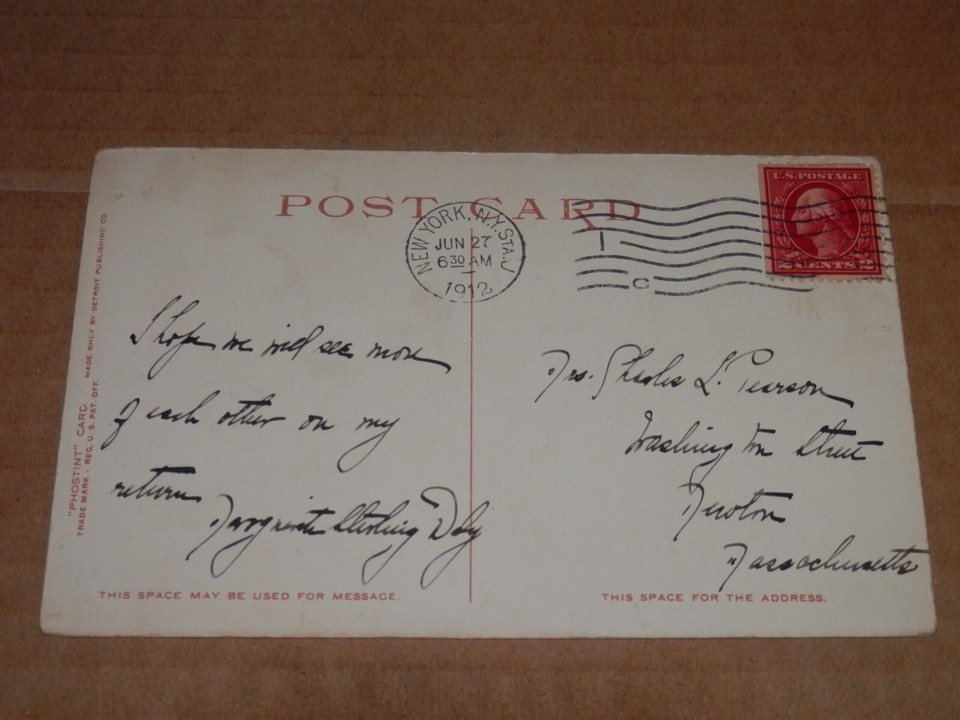 POST CARD
NEW YORK, N.Y. STA. J
JUN 27
6 30 AM
1912
1
C
U.S. POSTAGE
2 CENTS 2
"PHOSTINT" CARD.
TRADE MARK - REG. U.S. PAT. OFF. MADE ONLY BY DETROIT PUBLISHING CO.
I hope we will see more
of each other on my
return
Marguerite Sterling Day
Mrs. Charles L. Pearson
Washington Street
Newton
Massachusetts
THIS SPACE MAY BE USED FOR MESSAGE.
THIS SPACE FOR THE ADDRESS.